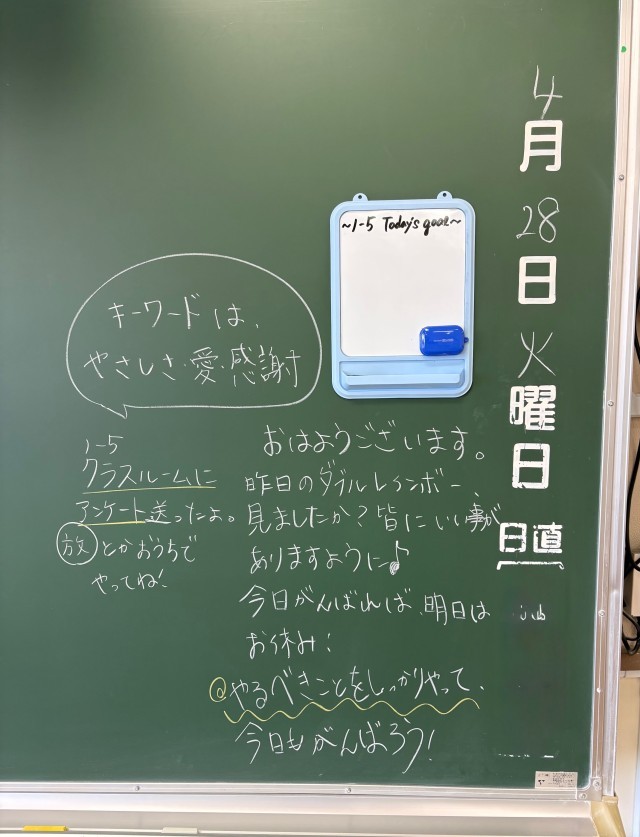 4月28日火曜日
日直
~1-5 Today's goal~
キーワードは、
やさしさ・愛・感謝
おはようございます。
昨日のダブルレインボー
見ましたか?皆にいい事が
ありますように♪
今日がんばれば、明日は
お休み!
@やるべきことをしっかりやって、
今日もがんばろう!
1-5
クラスルームに
アンケート送ったよ。
放とかおうちで
やってね!